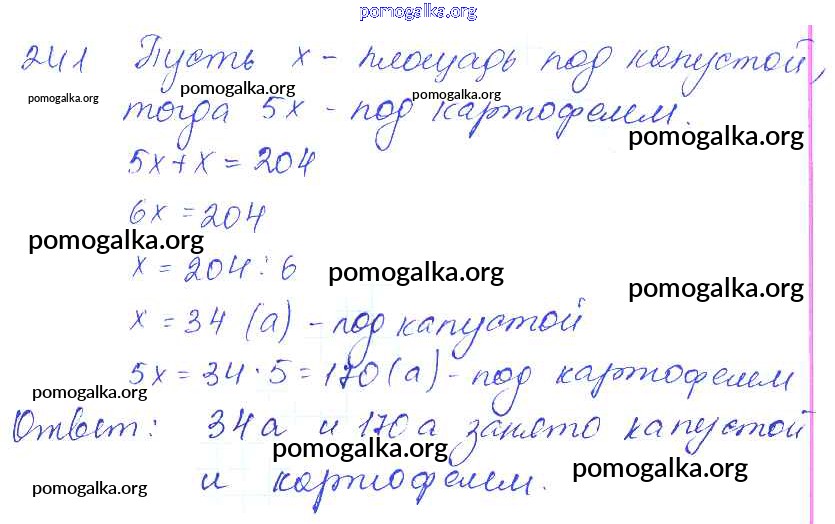 pomogalka.org
241 Пусть x - площадь под капустой,
pomogalka.org pomogalka.org pomogalka.org
тогда 5x - под картофелем.
pomogalka.org
5x + x = 204
6x = 204
pomogalka.org
x = 204 : 6
pomogalka.org
pomogalka.org
x = 34 (а) - под капустой
5x = 34 · 5 = 170 (а) - под картофелем
pomogalka.org
Ответ: 34 а и 170 а занято капустой
pomogalka.org
и картофелем.
pomogalka.org
pomogalka.org